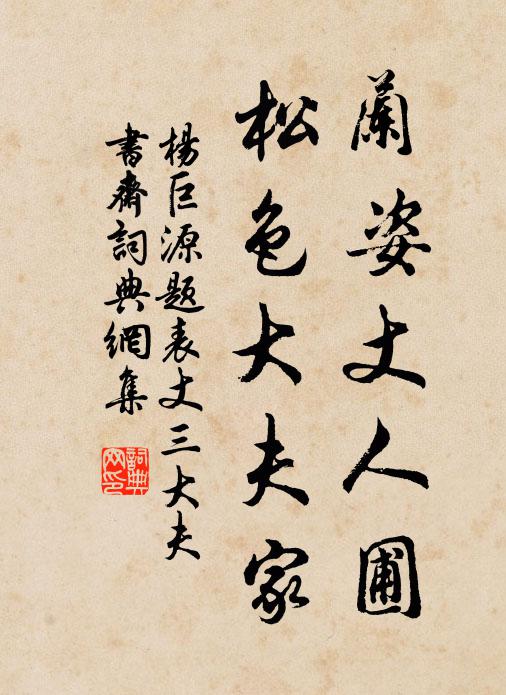 蘭姿丈人圃
松色大夫家
楊巨源題表丈三大夫
書齋詞典網集
詞典网印